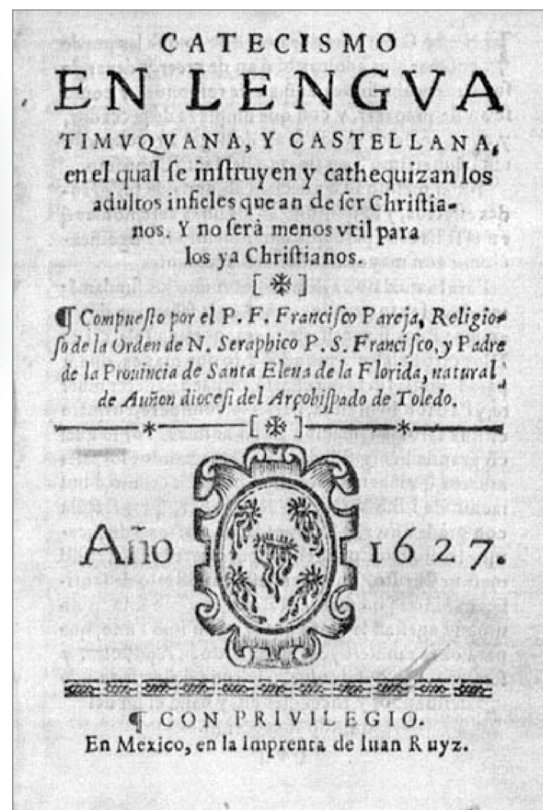 CATECISMO
EN LENGVA
TIMVQVANA, Y CASTELLANA,
en el qual ſe inſtruyen y cathequizan los
adultos infieles que an de ſer Chriſtia-
nos. Y no ſerà menos vtil para
los ya Chriſtianos.
[ ✠ ]
¶ Compueſto por el P. F. Franciſco Pareja, Religio-
ſo de la Orden de N. Seraphico P. S. Franciſco, y Padre
de la Prouincia de Santa Elena de la Florida, natural
de Auñon dioceſi del Arçobiſpado de Toledo.
[ ✠ ]
Año 1627.
¶ CON PRIVILEGIO.
En Mexico, en la Imprenta de Iuan Ruyz.